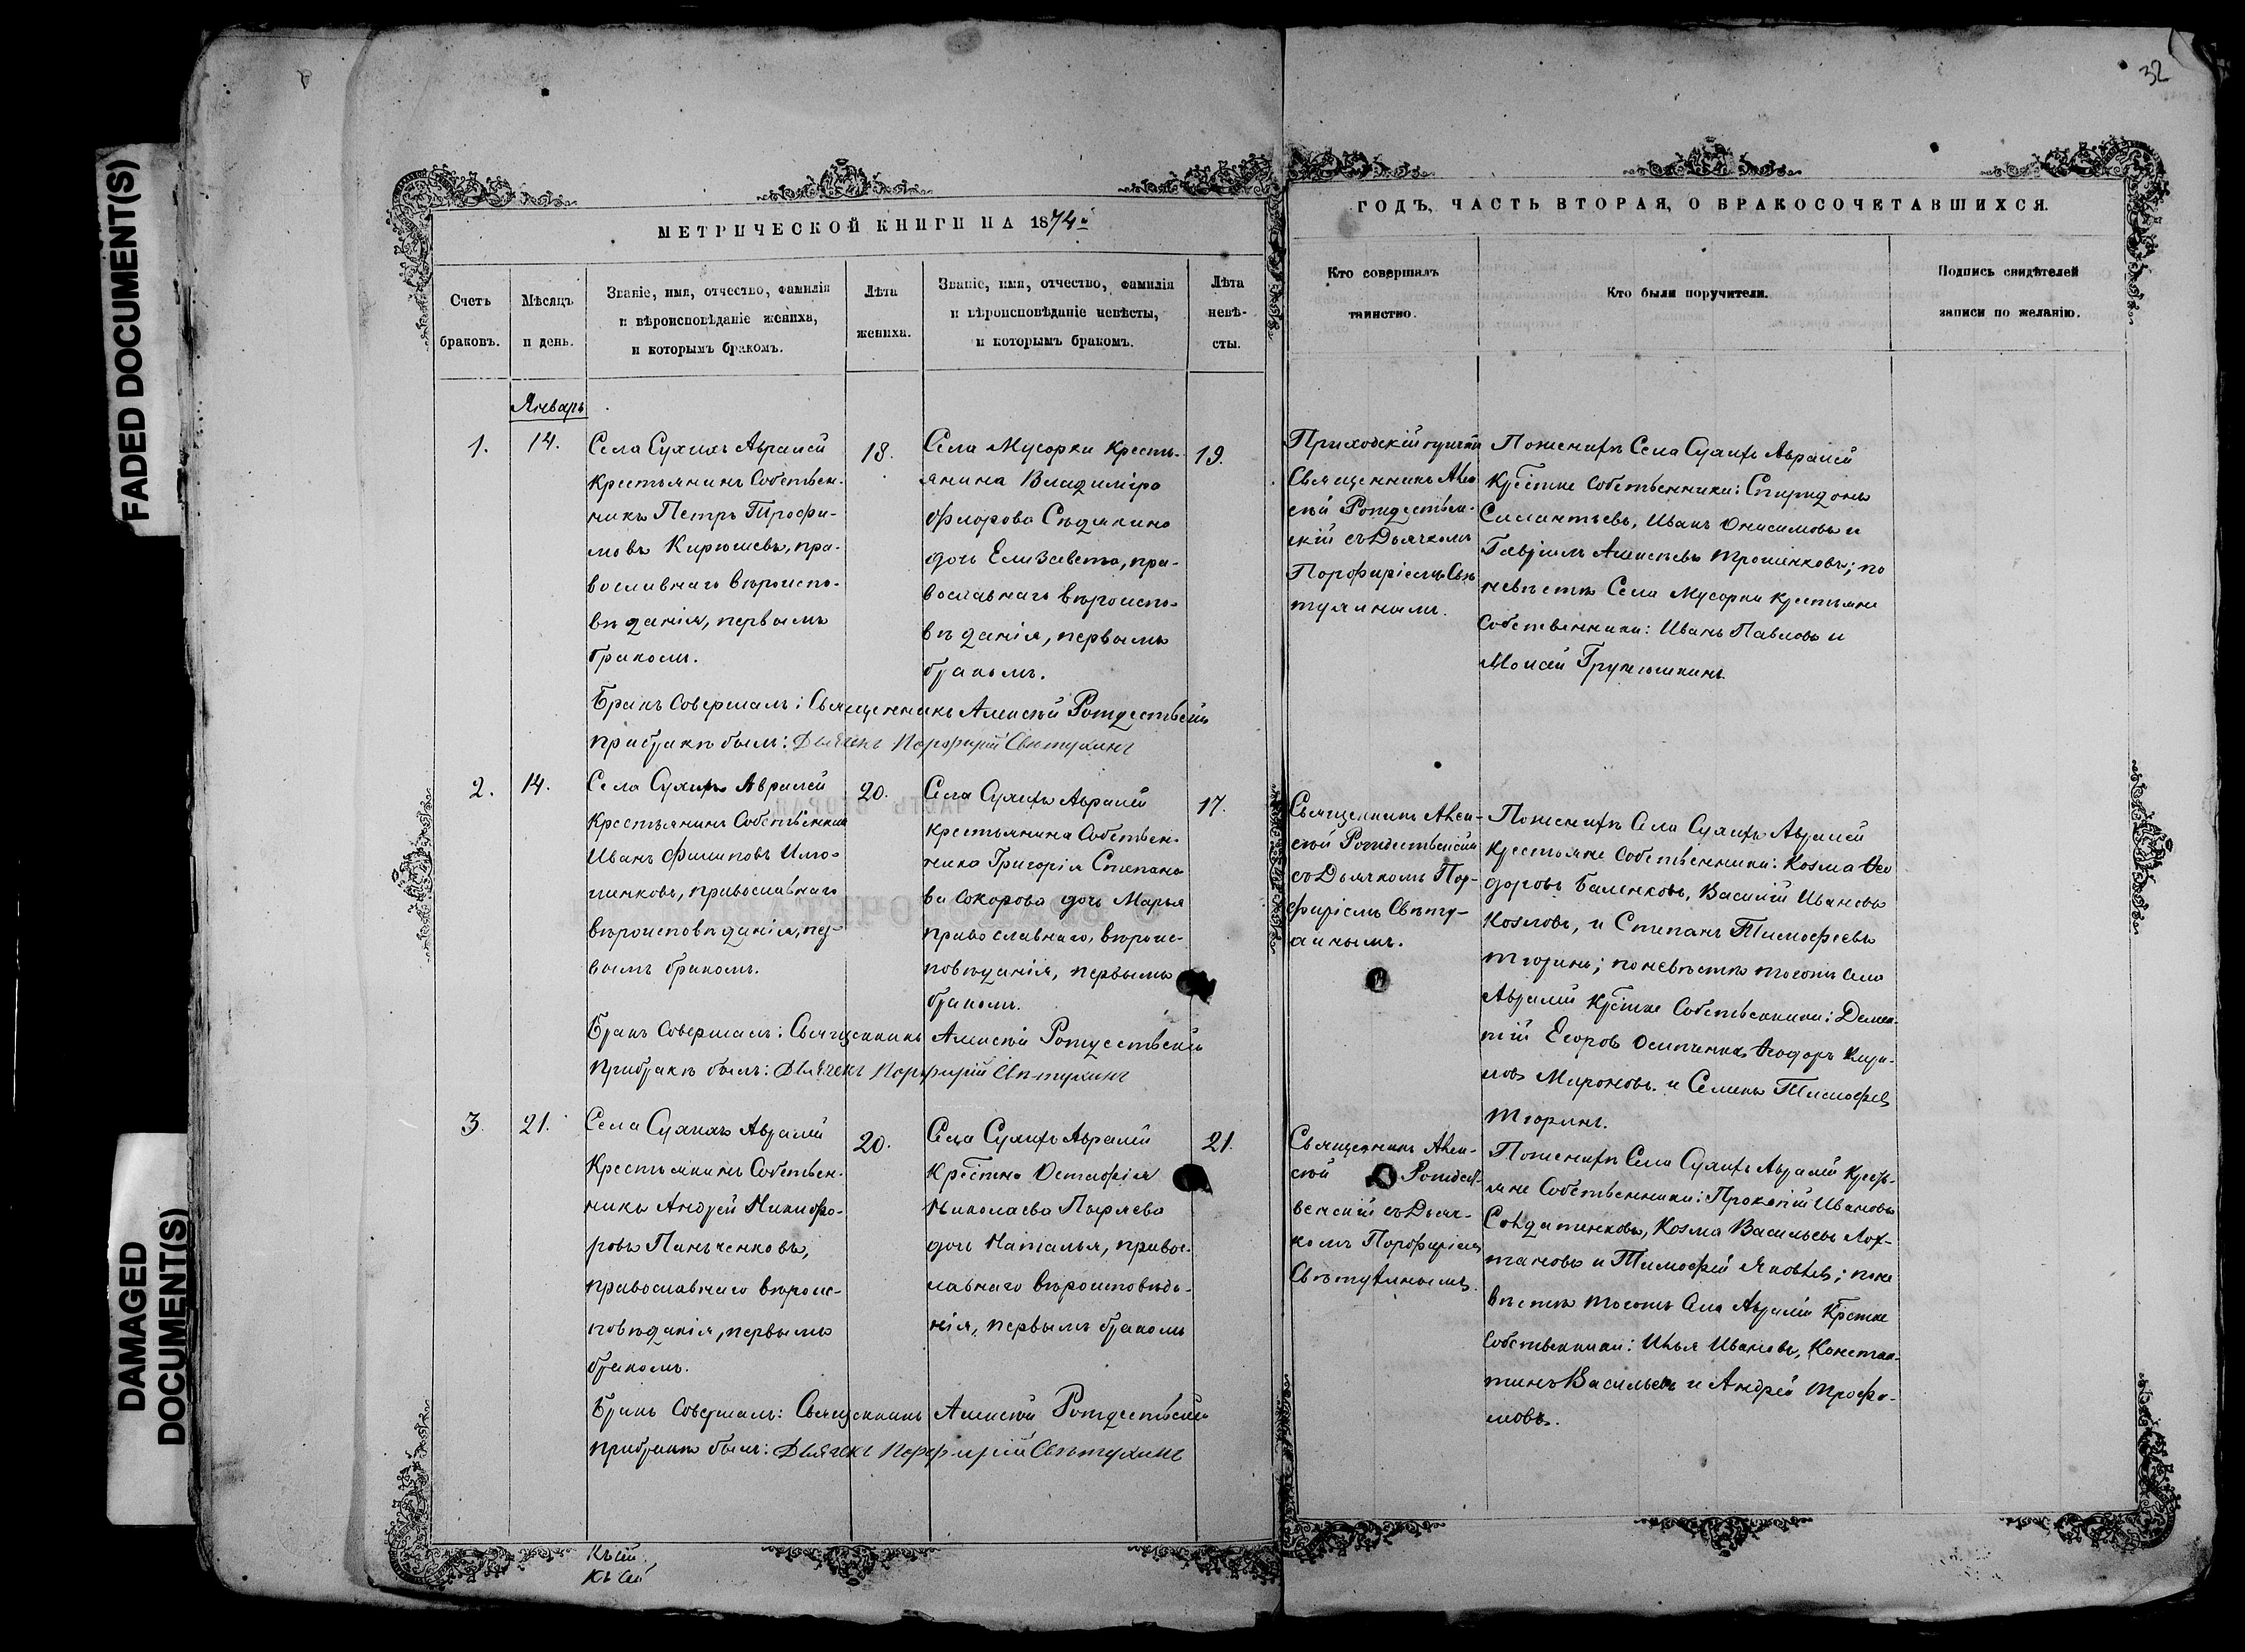 32
МЕТРИЧЕСКОЙ КНИГИ НА 1874й
ГОДЪ, ЧАСТЬ ВТОРАЯ, О БРАКОСОЧЕТАВШИХСЯ.
Счетъ
браковъ.
Мѣсяцъ
и день.
Званіе, имя, отчество, фамилія
и вѣроисповѣданіе жениха,
и которымъ бракомъ.
Лѣта
жениха.
Званіе, имя, отчество, фамилія
и вѣроисповѣданіе невѣсты,
и которымъ бракомъ.
Лѣта
невѣ-
сты.
Кто совершалъ
таинство.
Кто были поручители.
Подпись свидѣтелей
записи по желанію.
Январь
1.
14.
Села Сухихъ Авралей
крестьянинъ Собствен-
никъ Петръ Трофи-
мовъ Кирюшевъ, пра-
вославнаго вѣроиспо-
вѣданія, первымъ
бракомъ.
18.
Села Мусорки Кресть-
янина Владиміра
Флорова Сѣдякина
дочь Елизавета, пра-
вославнаго вѣроиспо-
вѣданія, первымъ
бракомъ.
19.
Приходскій
Священникъ Алек-
сѣй Рождествен-
скій съ Дьячкомъ
Порфиріемъ Свѣ
тухинымъ.
По женихѣ Села Сухихъ Авралей
Крестне Собственники: Спиридонъ
Силантьевъ, Иванъ Онисимовъ и
Гавріилъ Алексѣевъ Трошенковъ; по
невѣстѣ Села Мусорки крестьяне
Собственники: Иванъ Павловъ и
Моисей
Бракъ Совершалъ: Священникъ Алексѣй Рождественскій
при бракѣ былъ: Дьячекъ Порфирій Свѣтухинъ
2.
14.
Села Сухихъ Авралей
Крестьянинъ Собственникъ
Иванъ Филиповъ
православнаго
вѣроисповѣданія, пер-
вымъ бракомъ.
20.
Села Сухихъ Авралей
крестьянина Собствен-
ника Григорія Степано
ва Сокорова дочь Марья
православнаго, вѣроис-
повѣданія, первымъ
бракомъ.
17.
Священникъ Алек-
сѣй Рождественскій
съ Дьячкомъ Пор-
фиріемъ Свѣту-
хинымъ.
По женихѣ Села Сухихъ Авралей
Крестьяне Собственники: Козма Ѳео
доровъ Баленковъ, Василій Ивановъ
Козловъ, и Степанъ Тимофеевъ
Тюринъ; по невѣстѣ тогожъ Села
Авралей Крестне Собственники: Демен-
тій Егоровъ Осипенко, Ѳеодоръ Кири-
ловъ Мироновъ и Семенъ Тимофеевъ
Тюринъ.
Бракъ Совершалъ: Священникъ Алексѣй Рождественскій
при бракѣ былъ: Дьячекъ Порфирій Свѣтухинъ
3.
21.
Села Сухихъ Авралей
Крестьянинъ Собствен-
никъ Андрей Никифо-
ровъ Панъченковъ,
православнаго вѣроис-
повѣданія, первымъ
бракомъ.
20.
Села Сухихъ Авралей
Крестина Остафія
Николаева Пыряева
дочь Наталья, правос-
лавнаго вѣроисповѣда-
нія, первымъ бракомъ
21.
Священникъ Алек-
сѣй Рождест-
венскій съ Дьяч-
комъ Порфиріемъ
Свѣтухинымъ.
По женихѣ Села Сухихъ Авралей Кресть-
яне Собственники: Прокопій Ивановъ
Солдатенковъ, Козма Васильевъ Лох-
тановъ и Тимофей Яковлев; по не
вѣстѣ тогожъ Села Авралей Крестне
Собственники: Илья Ивановъ, Констан-
тинъ Васильевъ и Андрей Трофи-
мовъ.
Бракъ Совершалъ: Священникъ Алексѣй Рождественскій
при бракѣ былъ: Дьячекъ Порфирій Свѣтухинъ
Къ сей
Къ сей
FADED DOCUMENT(S)
DAMAGED
DOCUMENT(S)